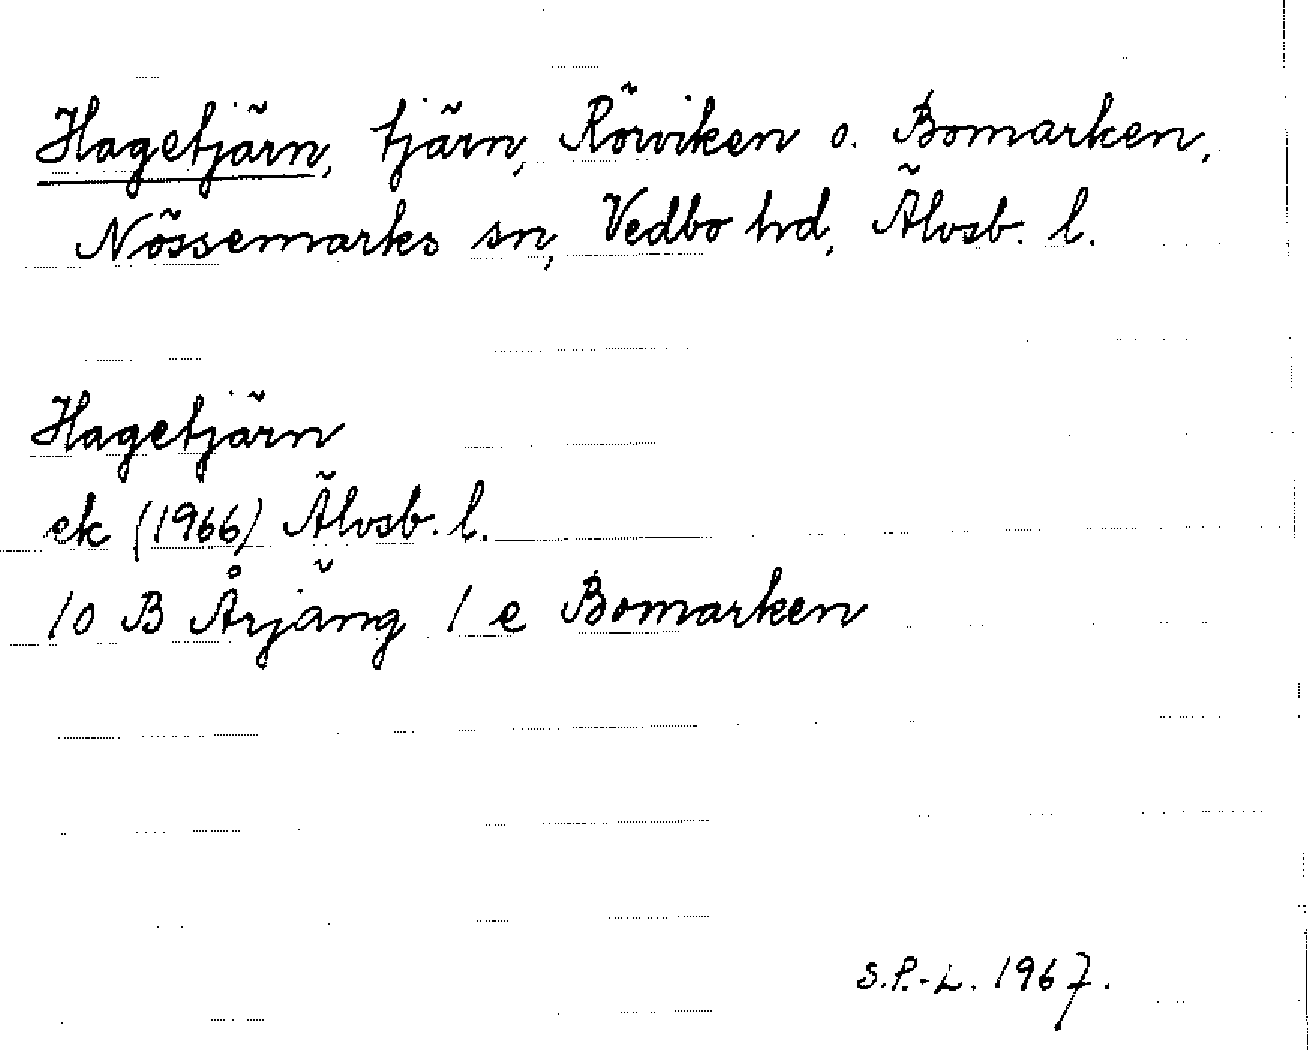 Hagetjärn, tjärn, Rörviken o. Bomarken,
Nössemarks sn, Vedbo hd, Älvsb. l.
Hagetjärn
ek (1966) Älvsb. l.
10 B Årjäng 1 e Bomarken
S.P.-L. 1967.